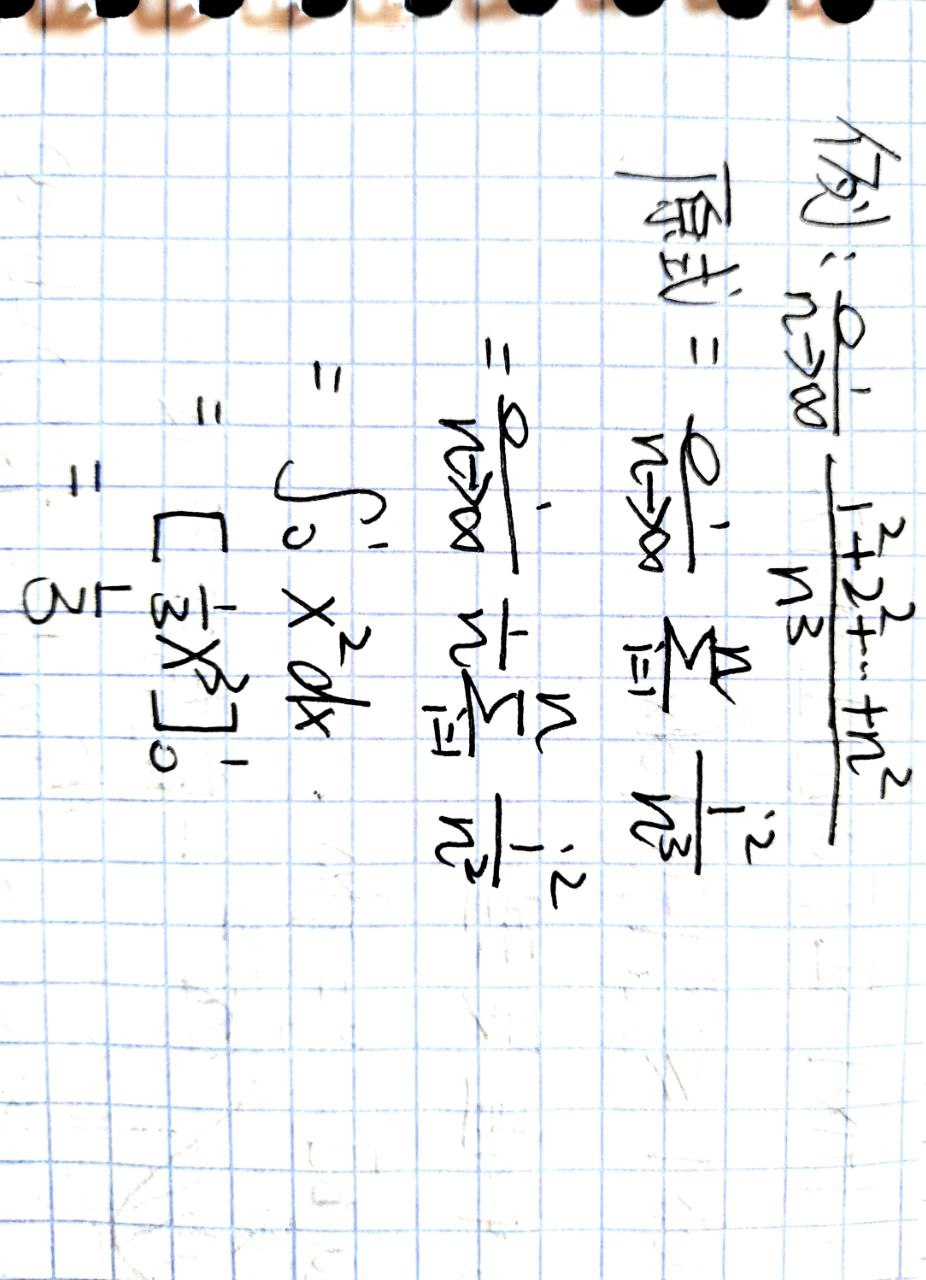 例: lim n→∞ (1²+2²+···+n²)/n³
原式 = lim n→∞ ∑ i=1 n i²/n³
= lim n→∞ 1/n ∑ i=1 n i²/n²
= ∫₀¹ x²dx
= [1/3 x³]₀¹
= 1/3